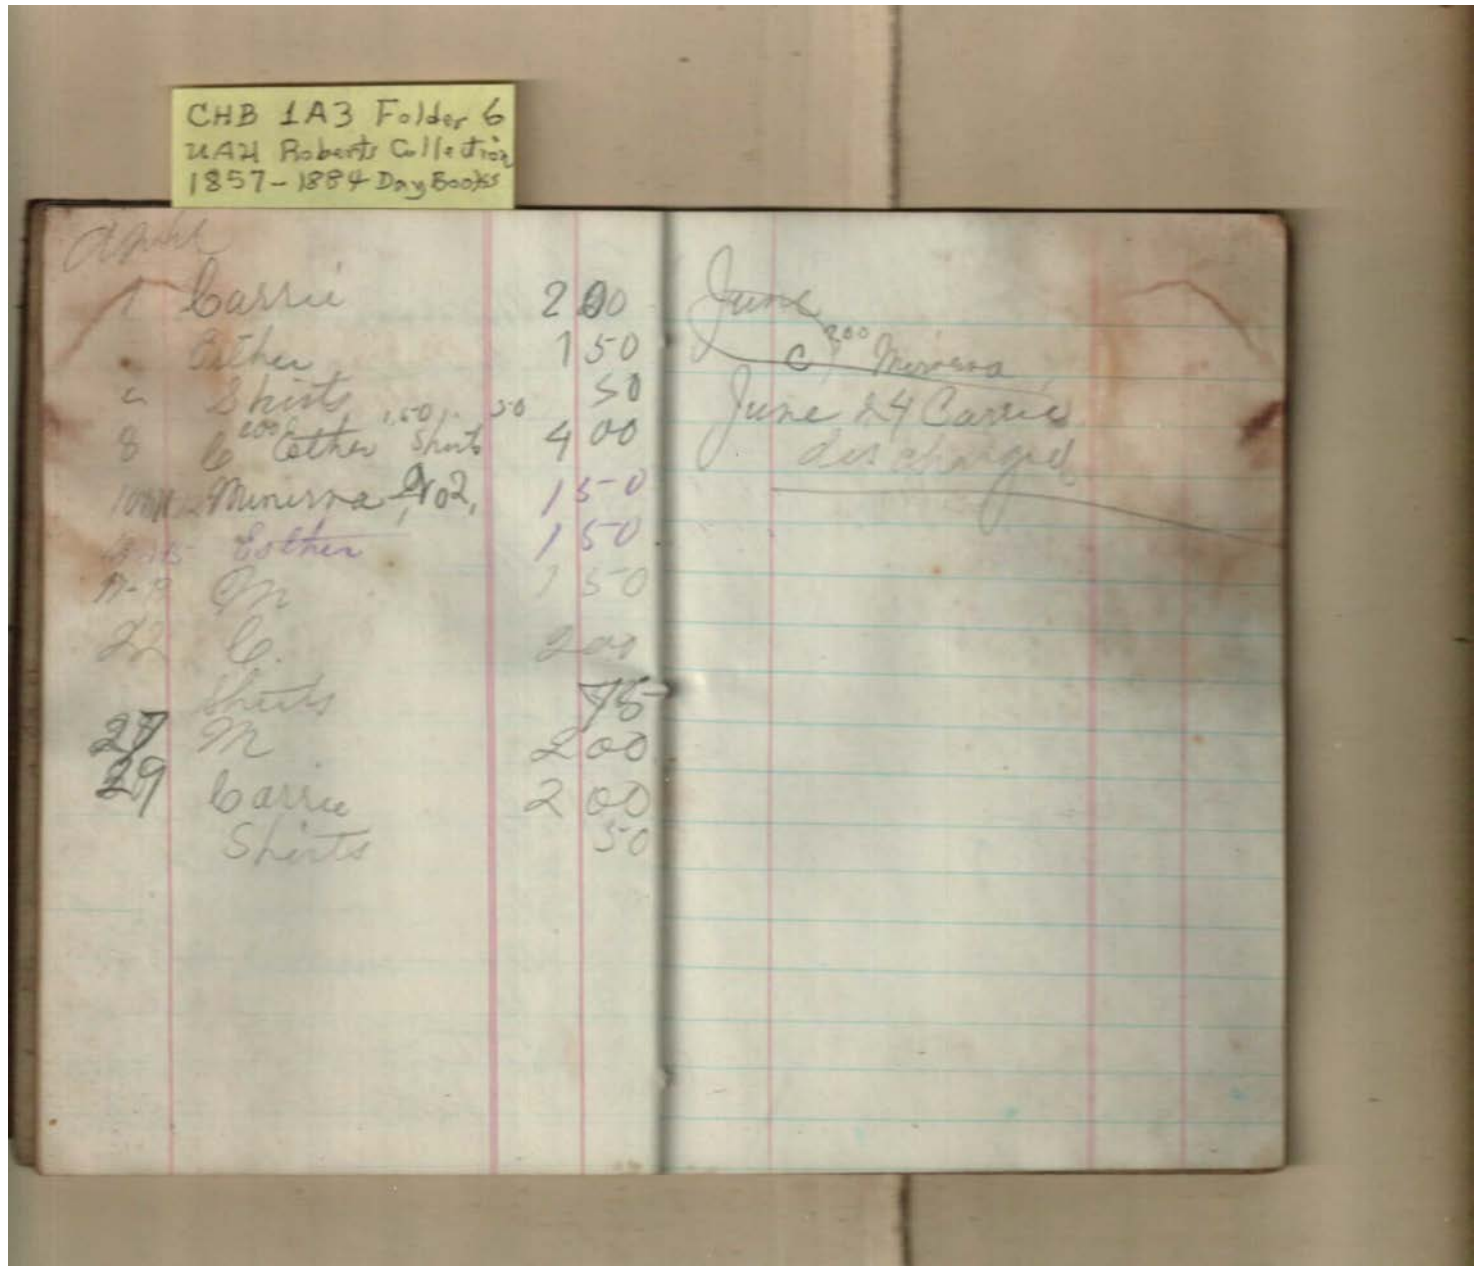 CHB 1A3 Folder 6
UAH Roberts Collection
1857-1884 Day Books
April
1 Carrie 2 00
" Esther 1 50
" Shirts 50
8 C 200 Esther 1.50 Shirts 50 4 00
Minerva No 2, 1 50
Esther 1 50
M 1 50
22 C. 2 00
Shirts 75
27 M 2 00
29 Carrie 2 00
Shirts 50
June
C 200 Minerva
June 24 Carrie
discharged